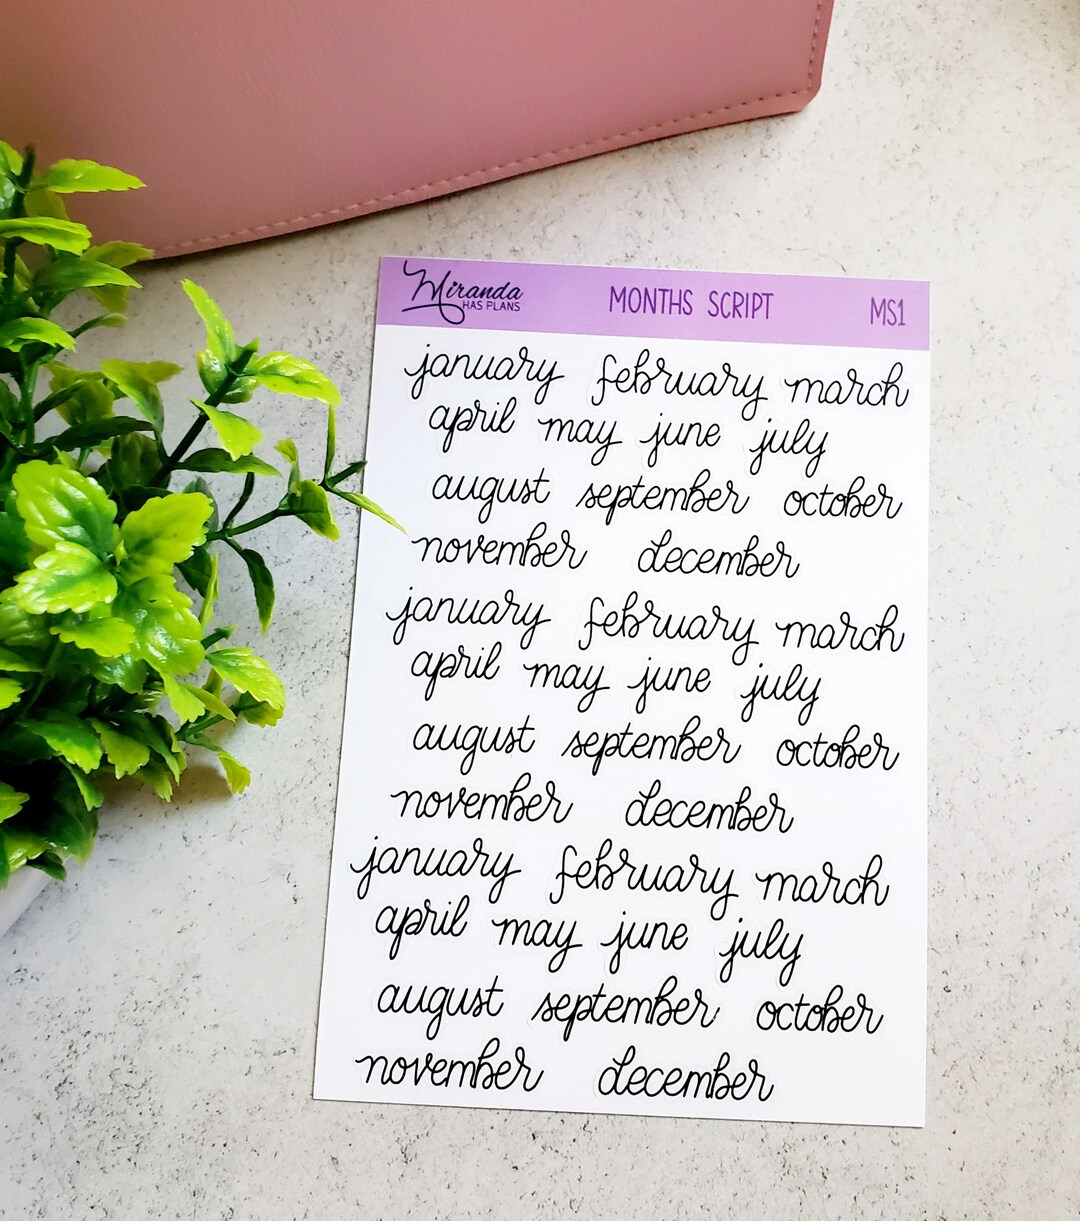 Miranda HAS PLANS MONTHS SCRIPT MS1
january february march
april may june july
august september october
november december
january february march
april may june july
august september october
november december
january february march
april may june july
august september october
november december